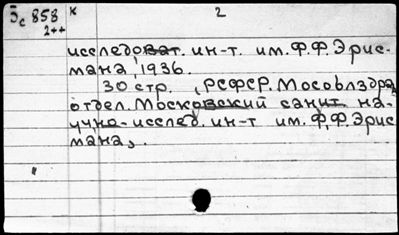 5c 858 к 2
2++
исследоват. ин-т. им. Ф.Ф. Эрис-
мана, 1936.
30 стр. , РСФСР. Мособлздрав
отдел. Московский санит. на-
учно-исслед. ин-т им. Ф.Ф. Эрис
мана, .